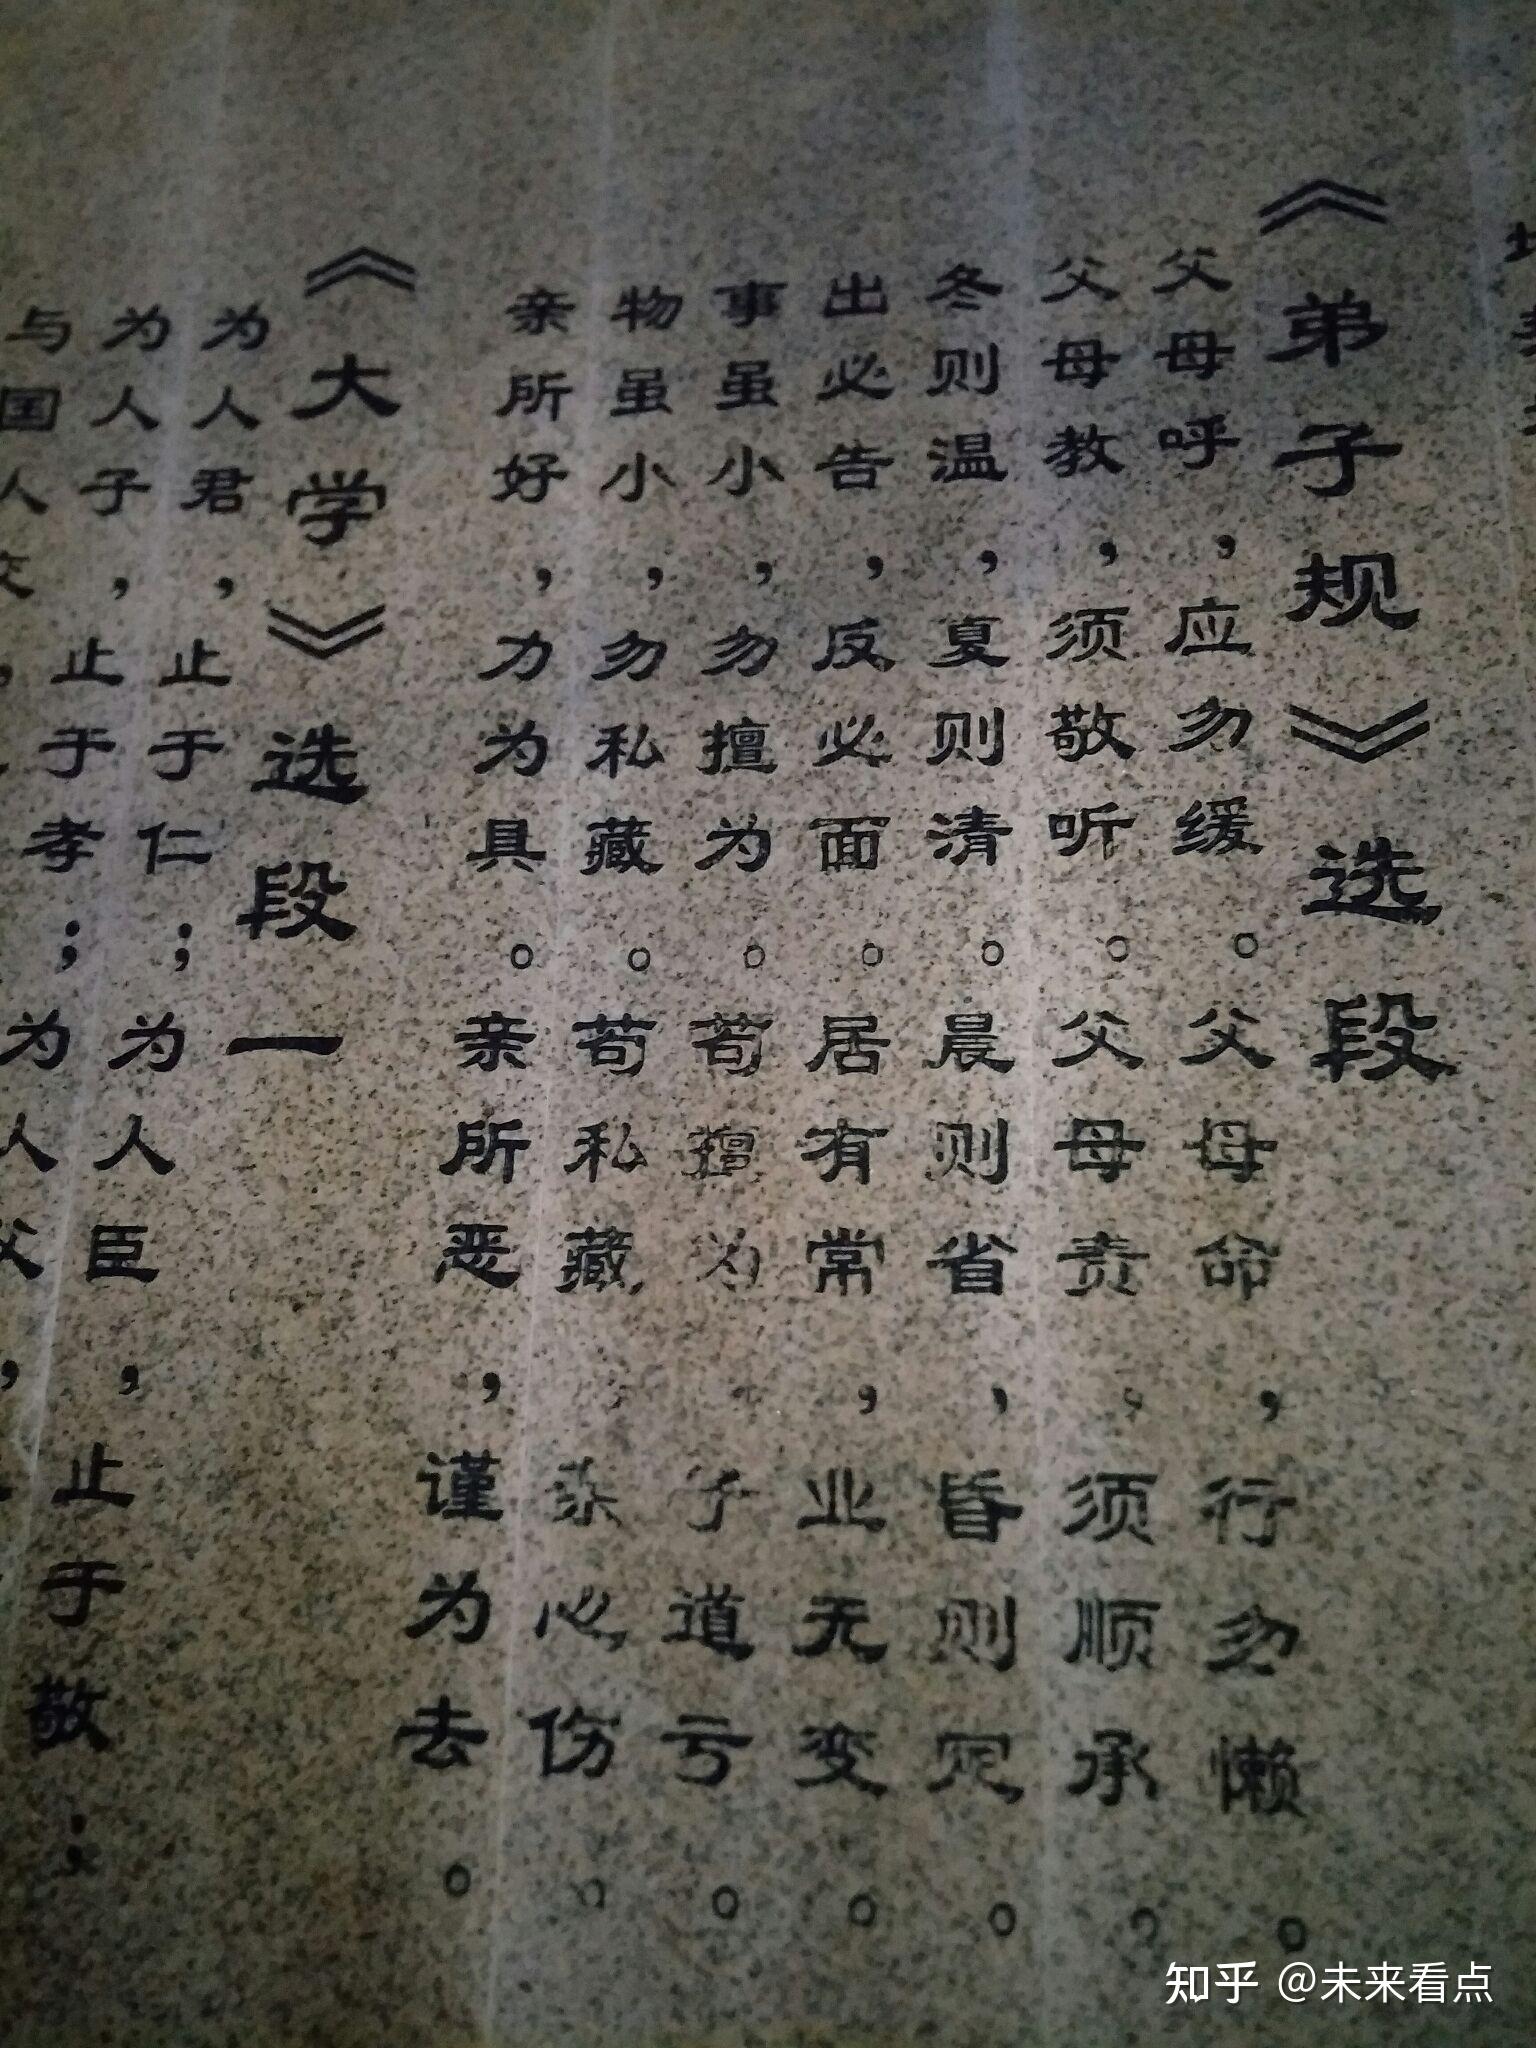 《弟子规》选段
父母呼，应勿缓。父母命，行勿懒。
父母教，须敬听。父母责，须顺承。
冬则温，夏则清。晨则省，昏则定。
出必告，反必面。居有常，业无变。
事虽小，勿擅为。苟擅为，子道亏。
物虽小，勿私藏。苟私藏，亲心伤。
亲所好，力为具。亲所恶，谨为去。
《大学》选段一
为人君，止于仁；为人臣，止于敬；
为人子，止于孝；为人父，
与国人交，
知乎 @未来看点